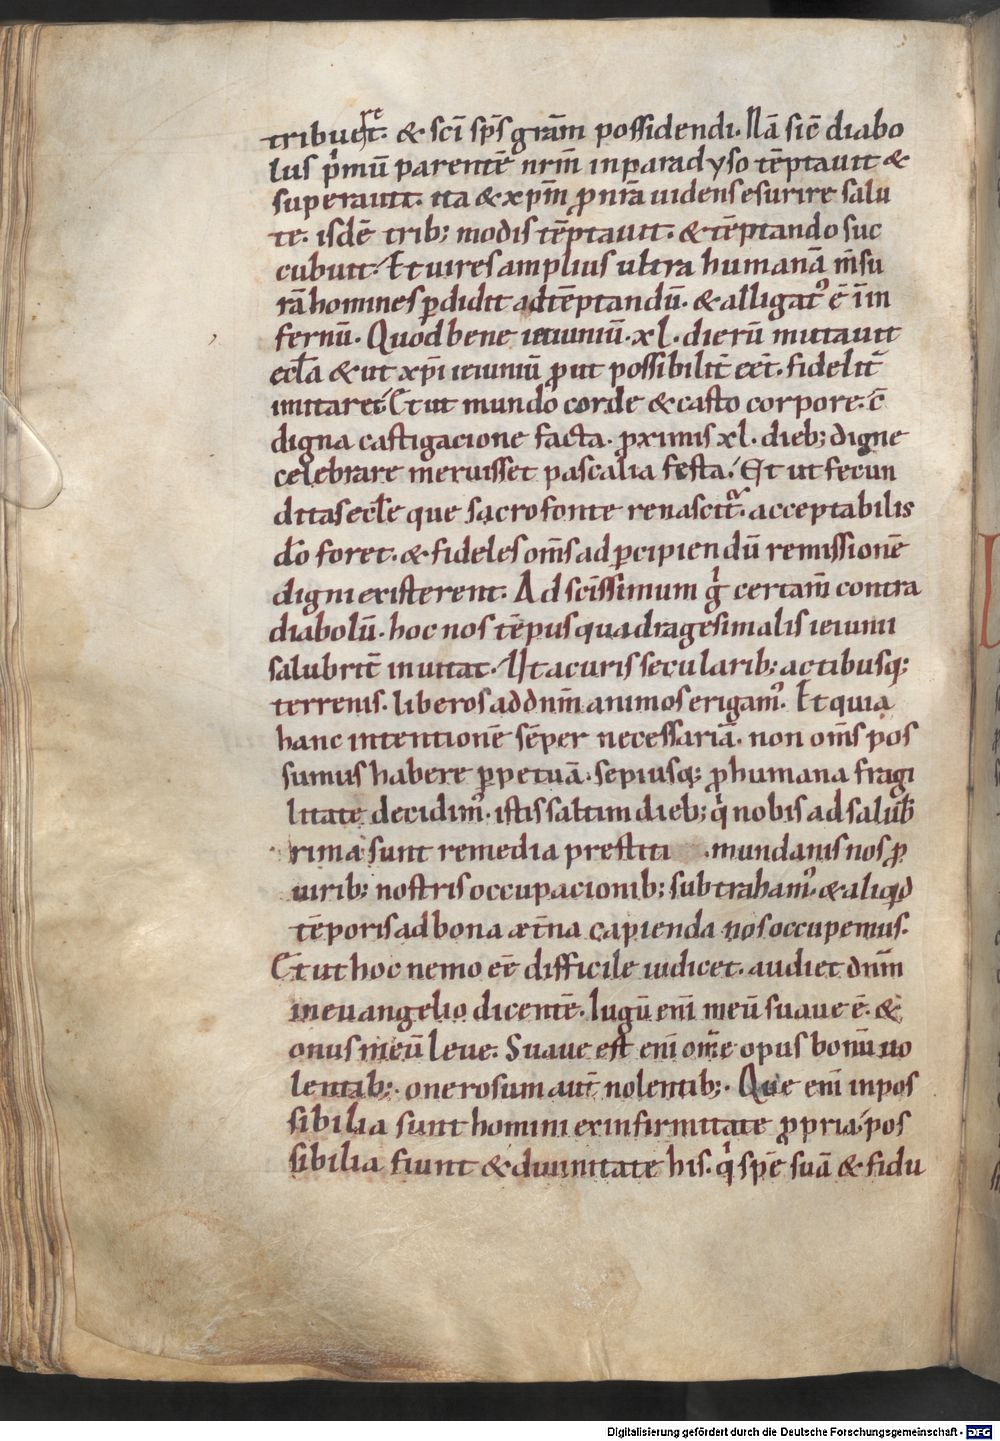 tribueret. & scī sp̄s grām possidendi. Nā sic̄ diabo
lus p̓mū parentē nrm̄ in paradyso tēptauit &
superauit. ita & xpm̄ ꝓ nrā uidens esurire salu
te. isdē trib; modis tēptauit. & tēptando suc
cubuit. Et uires amplius ultra humanā m̄su
rā homines ꝑdidit ad tēptandū. & alligat᾽ ē īin
fernū. Quod bene ieiuniū .xl. dierū mutauit
eccl̄a & ut xp̄i ieiuniū ꝓut possibilit̄ eēt. fidelit̄
imitaret. Et ut mundo corde & casto corpore. c̄
digna castigacione facta. ꝓximis xl. dieb; digne
celebrare meruisset pascalia festa. Et ut fecun
ditas eccl̄e que sacro fonte renascit᾽. acceptabilis
dō foret. & fideles om̄s ad ꝑcipiendū remissionē
digni existerent. Ad scīssimum g̓ certam̄ contra
diabolū. hoc nos tēpus quadragesimalis ieiunii
salubrit̄ inuitat. Ut a curis secularib; actibusq;
terrenis. liberos ad dnm̄ animos erigam᾽. Et quia
hanc intentionē sēper necessariā. non om̄s pos
sumus habere ꝑpetuā. sepiusq; ꝓ humana fragi
litate decidim᾽. istis saltim dieb; q̓ nobis ad salub̄
rima sunt remedia prestiti .mundanis nos ꝓ
uirib; nostris occupacionib; subtraham᾽. & aliq̓d
tēporis ad bona æt̄na capienda nos occupemus.
Et ut hoc nemo eē difficile iudicet. audiet dnm̄
in euangelio dicentē. Iugū enī meū suaue ē. &
onus meū leue. Suaue est enī om̄e opus bonū uo
lentib;. onerosum aut̄ nolentib;. Que enī inpos
sibilia sunt homini ex infirmitate ꝓpria. pos
sibilia fiunt & diuinitate his. q̓ spē suā & fidu
Digitalisierung gefördert durch die Deutsche Forschungsgemeinschaft - DFG